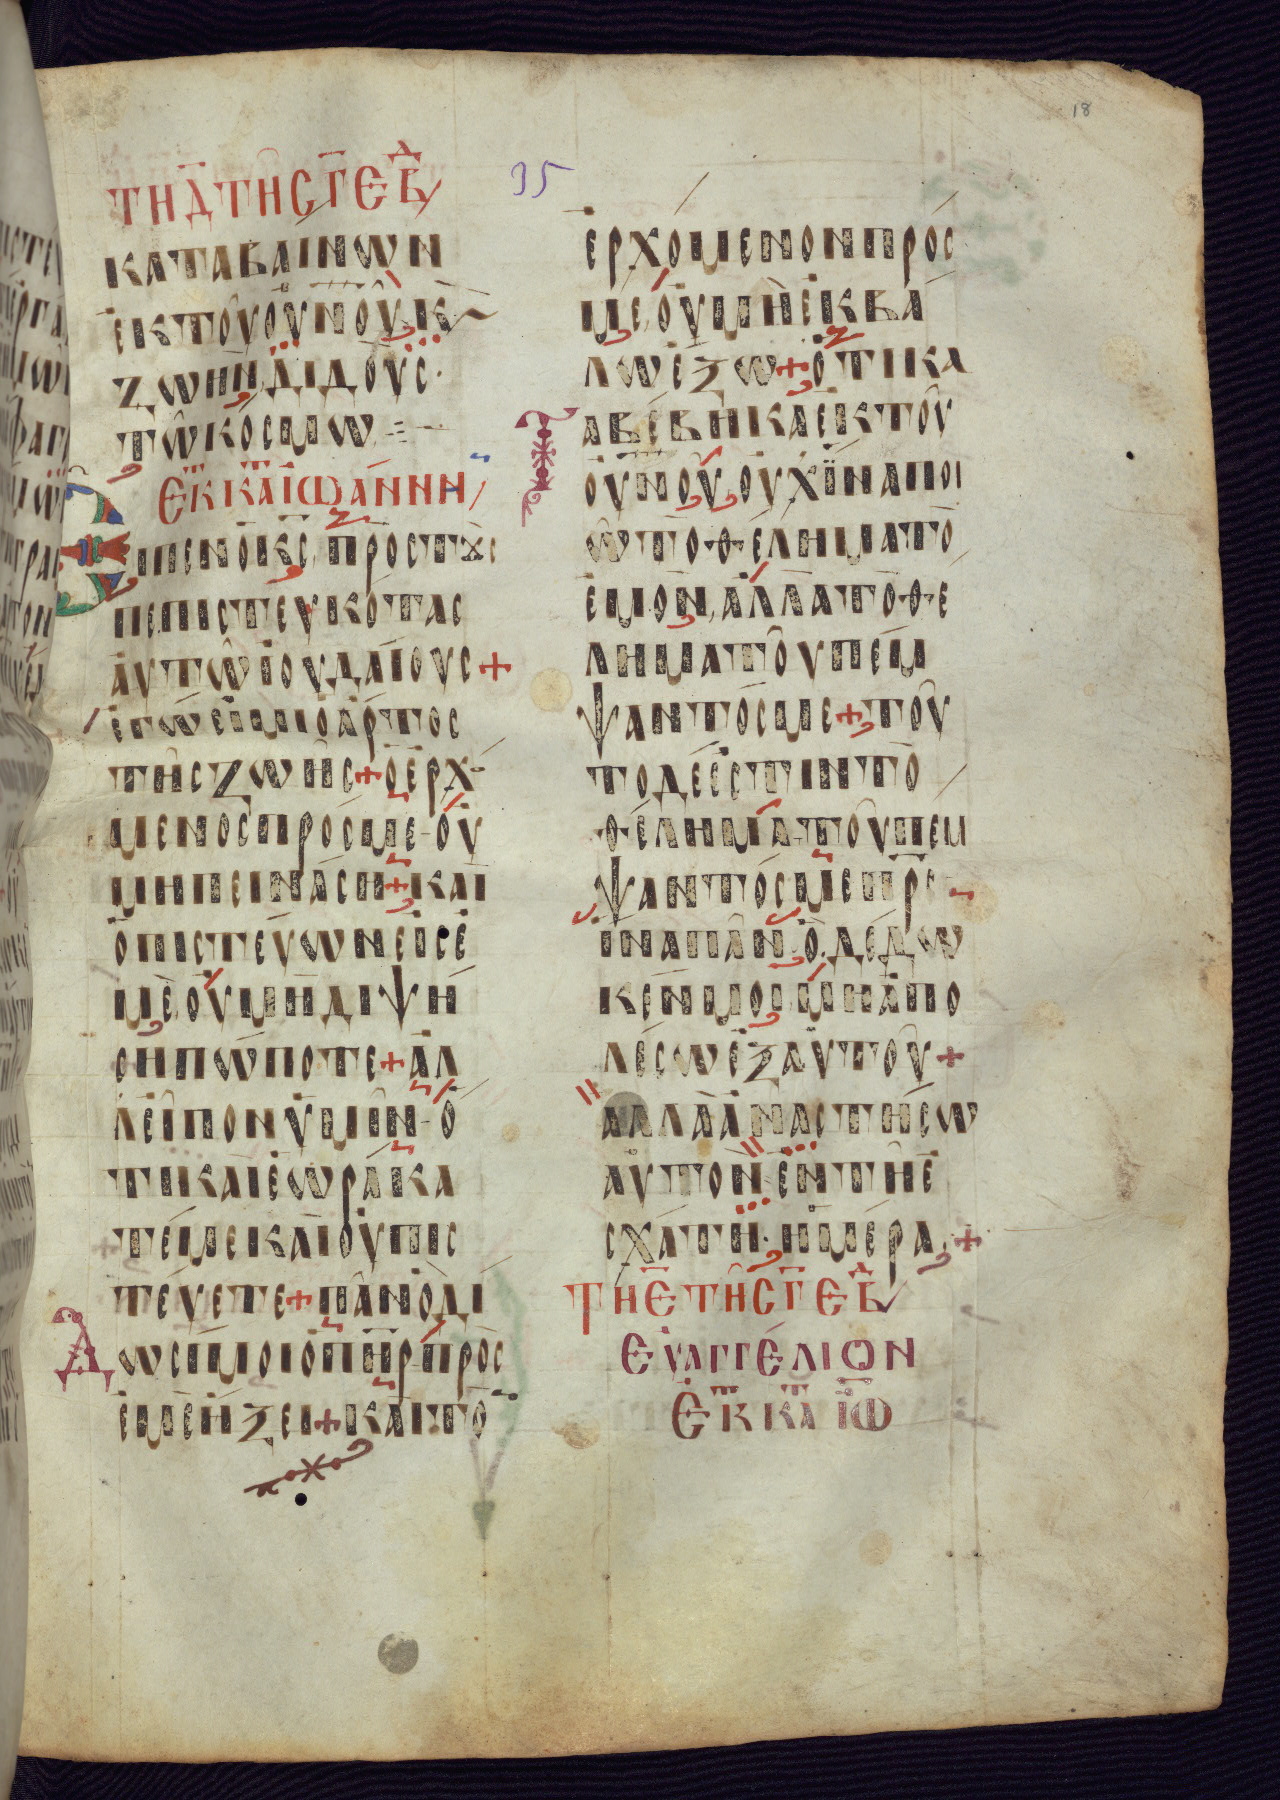 18
35
ΤΗ Δ ΤΗς Γ ΕΒΔ
ΚΑΤΑΒΑΙΝΩΝ
ΕΚ ΤΟΥ ΟΥΝΟΥ Κ
ΖΩΗΝ ΔΙΔΟΥC·
ΤΩ ΚΟCΜΩ
ΕΚ Τ ΚΑΤ ΙΩΑΝΝΗΝ
ΕΙΠΕΝ Ο ΙC ΠΡΟC ΤΟΥC
ΠΕΠΙCΤΕΥΚΟΤΑC
ΑΥΤΩ ΙΟΥΔΑΙΟΥC+
ΕΓΩ ΕΙΜΙ Ο ΑΡΤΟC
ΤΗC ΖΩΗC+Ο ΕΡΧ
ΜΕΝΟC ΠΡΟC ΜΕ ΟΥ
ΜΗ ΠΕΙΝΑCΗ+ΚΑΙ
Ο ΠΙCΤΕΥΩΝ ΕΙC Ε
ΜΕ ΟΥ ΜΗ ΔΙΨΗ
CΗ ΠΩΠΟΤΕ+ΑΛ
Λ ΕΙΠΟΝ ΥΜΙΝ Ο
ΤΙ ΚΑΙ ΕΩΡΑΚΑ
ΤΕ ΜΕ ΚΑΙ ΟΥ ΠΙC
ΤΕΥΕΤΕ+ΠΑΝ Ο ΔΙ
ΔΩCΙ ΜΟΙ Ο ΠΗΡ ΠΡΟC
ΕΜΕ ΗΞΕΙ+ΚΑΙ ΤΟ
ΕΡΧΟΜΕΝΟΝ ΠΡΟC
ΜΕ ΟΥ ΜΗ ΕΚΒΑ
ΛΩ ΕΞΩ+ΟΤΙ ΚΑ
ΤΑΒΕΒΗΚΑ ΕΚ ΤΟΥ
ΟΥΝΟΥ ΟΥΧ ΙΝΑ ΠΟΙ
Ω ΤΟ ΘΕΛΗΜΑ ΤΟ
ΕΜΟΝ ΑΛΛΑ ΤΟ ΘΕ
ΛΗΜΑ ΤΟΥ ΠΕΜ
ΨΑΝΤΟC ΜΕ+ΤΟΥ
ΤΟ ΔΕ ΕCΤΙΝ ΤΟ
ΘΕΛΗΜΑ ΤΟΥ ΠΕΜ
ΨΑΝΤΟC ΜΕ ΠΡC
ΙΝΑ ΠΑΝ Ο ΔΕΔΩ
ΚΕΝ ΜΟΙ ΜΗ ΑΠΟ
ΛΕCΩ ΕΞ ΑΥΤΟΥ+
ΑΛΛΑ ΑΝΑCΤΗCΩ
ΑΥΤΟΝ ΕΝ ΤΗ Ε
CΧΑΤΗ·ΗΜΕΡΑ+
ΤΗ Ε ΤΗC Γ ΕΒΔ
ΕΥΑΓΓΕΛΙΟΝ
ΕΚ Τ ΚΑΤ ΙΩ